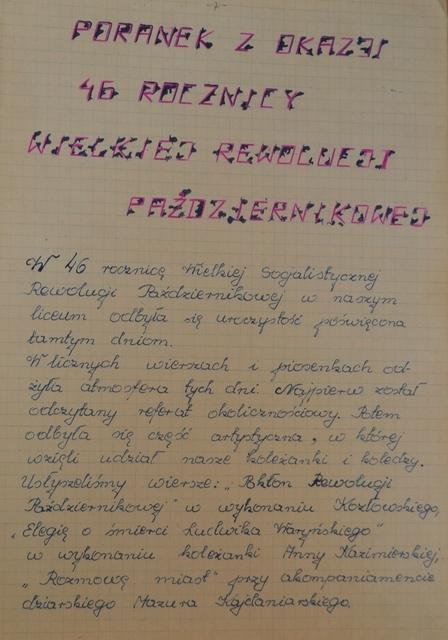 -7-
PORANEK Z OKAZJI
46 ROCZNICY
WIELKIEJ REWOLUCJI
PAŹDZIERNIKOWEJ
W 46 rocznicę Wielkiej Socjalistycznej
Rewolucji Październikowej w naszym
liceum odbyła się uroczystość poświęcona
tamtym dniom.
W licznych wierszach i piosenkach od-
żyła atmosfera tych dni. Najpierw został
odczytany referat okolicznościowy. Potem
odbyła się część artystyczna, w której
wzięli udział nasze koleżanki i koledzy.
Usłyszeliśmy wiersze: „ Rewolucji
Październikowej" w wykonaniu Kozłowskiego,
„Elegię o śmierci Ludwika Waryńskiego"
w wykonaniu koleżanki Anny Kazimierskiej,
„Rozmowę miast" przy akompaniamencie
dziarskiego Mazura Kajdaniarskiego.